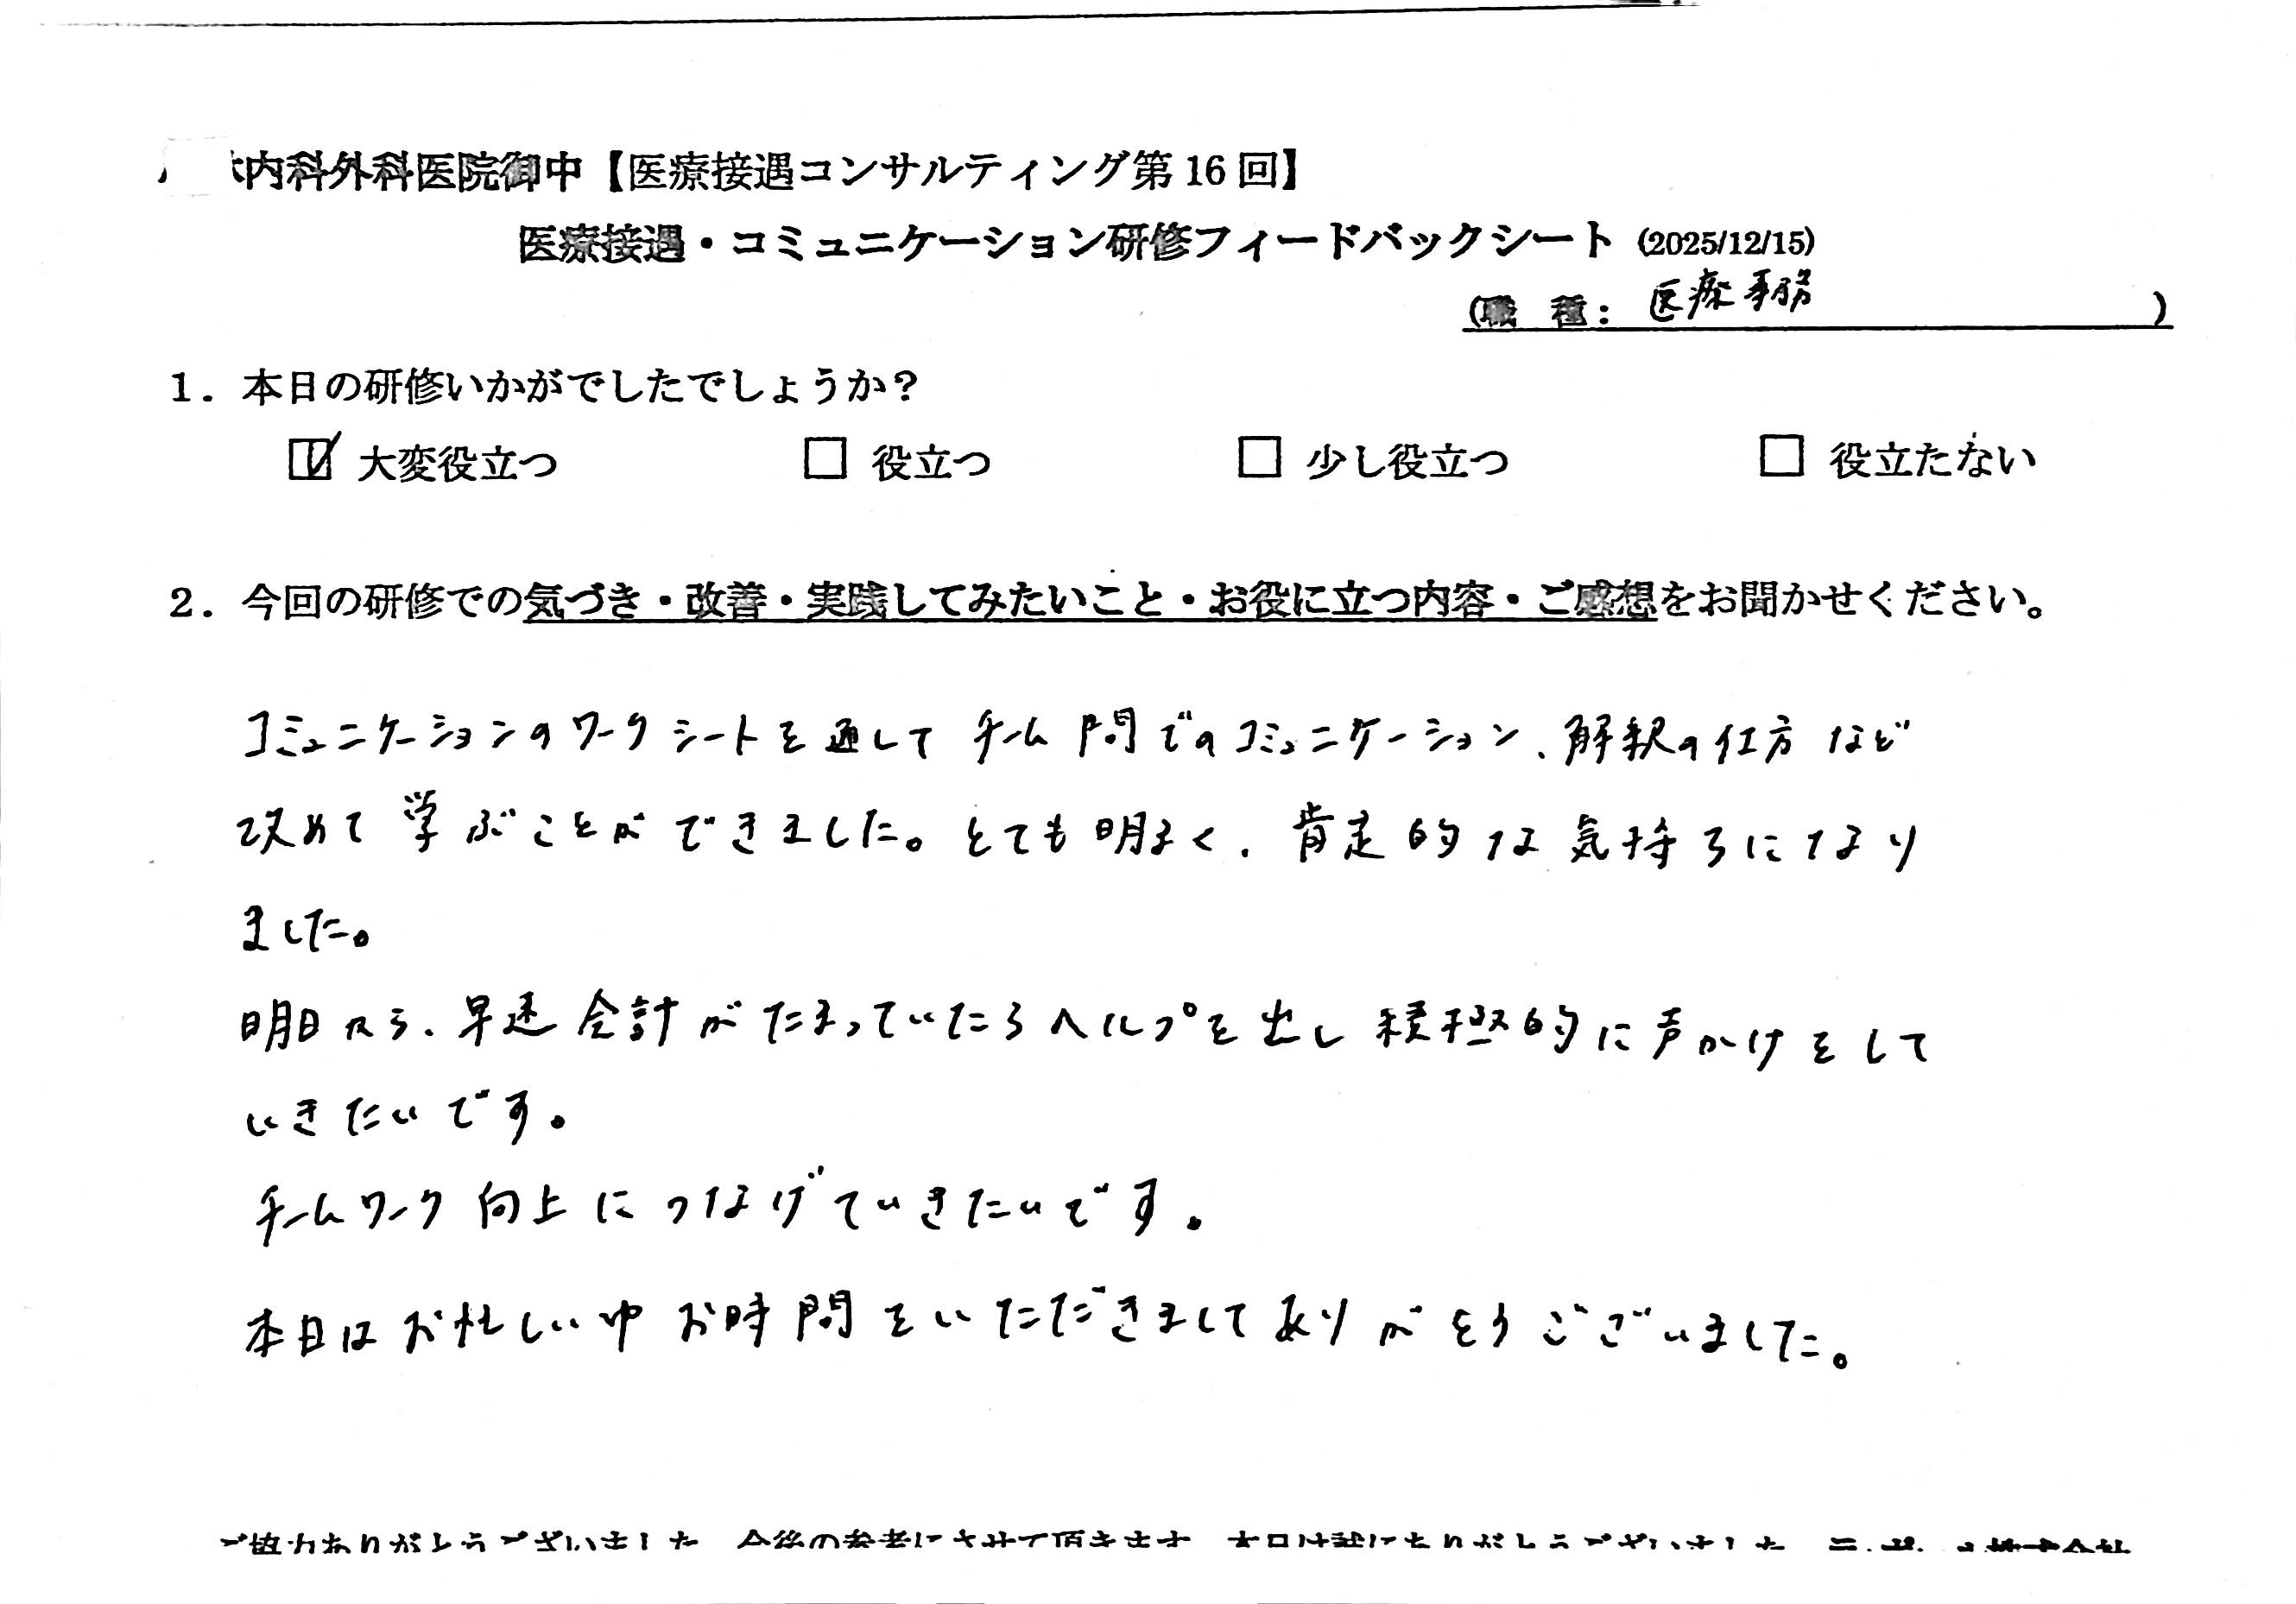 内科外科医院御中【医療接遇コンサルティング第16回】
医療接遇・コミュニケーション研修フィードバックシート (2025/12/15)
(職 種: 医療事務 )
1. 本日の研修いかがでしたでしょうか?
☑ 大変役立つ □ 役立つ □ 少し役立つ □ 役立たない
2. 今回の研修での気づき・改善・実践してみたいこと・お役に立つ内容・ご感想をお聞かせください。
コミュニケーションのワークシートを通して チーム間でのコミュニケーション、解釈の仕方など
改めて学ぶことができました。とても明るく、肯定的な気持ちになり
ました。
明日から、早速会計がたまっていたらヘルプを出し積極的に声かけをして
いきたいです。
チームワーク向上につなげていきたいです。
本日はお忙しい中お時間をいただきましてありがとうございました。
ご協力ありがとうございました 今後の参考にさせて頂きます 本日は誠にありがとうございました